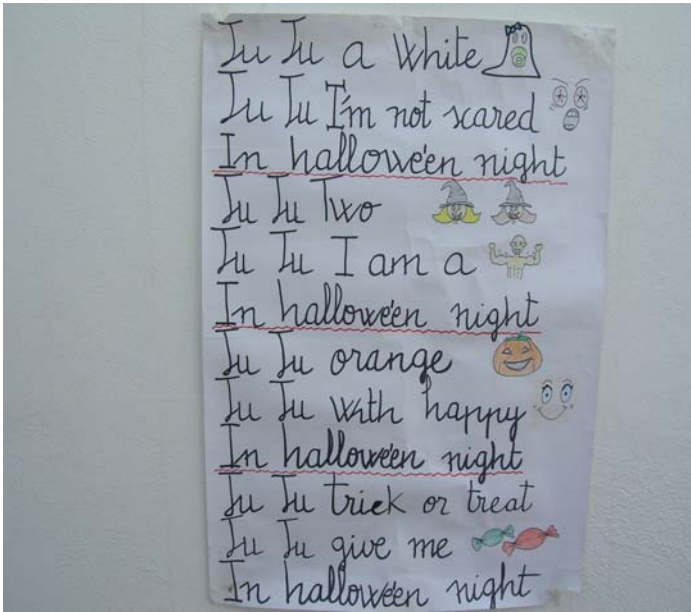 Tu Tu a white
Tu Tu I'm not scared
In hallowe'en night
Tu Tu Two
Tu Tu I am a
In hallowe'en night
Tu Tu orange
Tu Tu with happy
In hallowe'en night
Tu Tu trick or treat
Tu Tu give me
In hallowe'en night